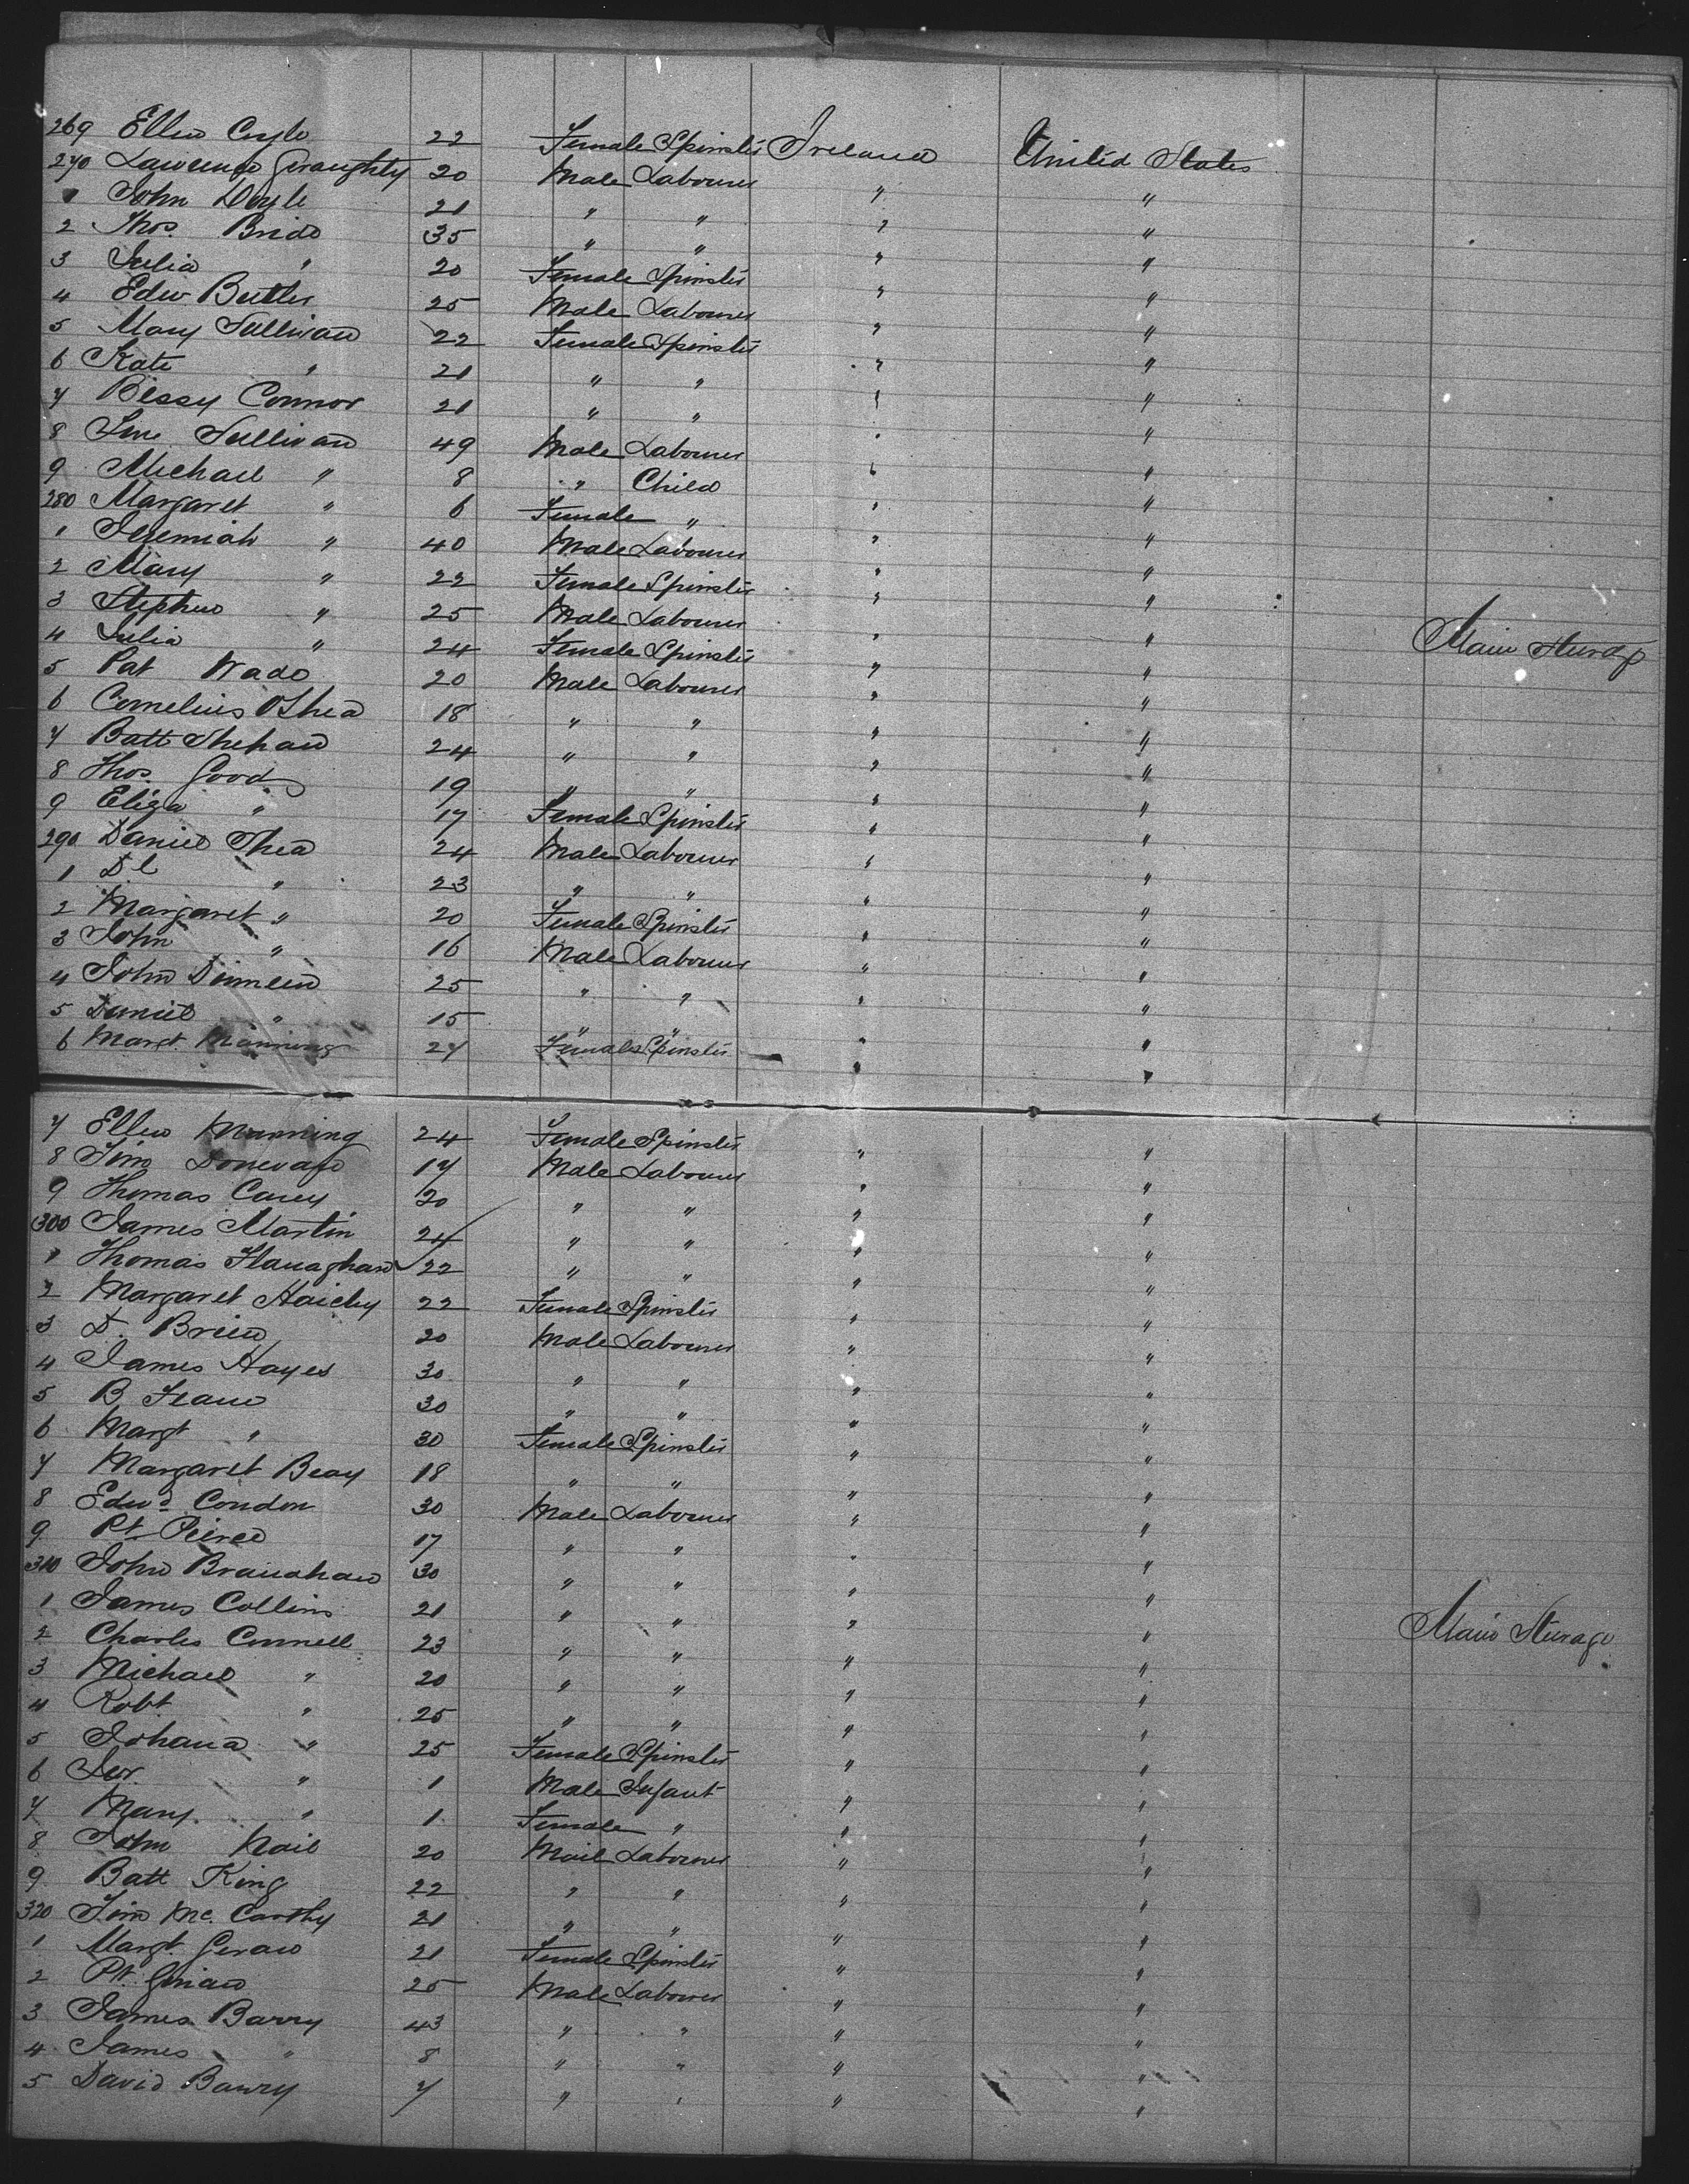 269 Ellen Coyle 22 Female Spinster Ireland United States
270 Lawrence Geraughty 20 Male Labourer " "
1 John Doyle 21 " " " "
2 Thos. Bride 35 " " " "
3 Julia " 20 Female Spinster " "
4 Edw Butler 25 Male Labourer " "
5 Mary Sullivan 22 Female Spinster " "
6 Kate " 21 " " " "
7 Bessy Connor 21 " " " "
8 Sullivan 49 Male Labourer " "
9 Michael " 8 " Child " "
280 Margaret " 6 Female " " "
1 Jeremiah " 40 Male Labourer " "
2 Mary " 22 Female Spinster " "
3 Stephen " 25 Male Labourer " "
4 Julia " 24 Female Spinster " " Main Steerage
5 Pat Wade 20 Male Labourer " "
6 Cornelius OShea 18 " " " "
7 Batt Shehan 24 " " " "
8 Thos. Good 19 " " " "
9 Eliza " 17 Female Spinster " "
290 Daniel Shea 24 Male Labourer " "
1 Dl " 23 " " " "
2 Margaret " 20 Female Spinster " "
3 John " 16 Male Labourer " "
4 John 25 " " " "
5 Daniel " 15 " " " "
6 Margt. Manning 27 Female Spinster " "
7 Ellen Manning 24 Female Spinster " "
8 Tim Donevan 17 Male Labourer " "
9 Thomas Carey 20 " " " "
300 James Martin 24 " " " "
1 Thomas Flanaghan 22 " " " "
2 Margaret 22 Female Spinster " "
3 D. Brien 20 Male Labourer " "
4 James Hayes 30 " " " "
5 B. 30 " " " "
6 Margt " 30 Female Spinster " "
7 Margaret Beay 18 " " " "
8 Edwd Condon 30 Male Labourer " "
9 Pt Peirce 17 " " " "
310 John 30 " " " "
1 James Collins 21 " " " "
2 Charles Connell 23 " " " " Main Steerage
3 Michael " 20 " " " "
4 Robt. " 25 " " " "
5 Johana " 25 Female Spinster " "
6 Jer. " 1 Male Infant " "
7 Mary " 1 Female " " "
8 John Nail 20 Mail Labourer " "
9 Batt King 22 " " " "
320 Tim Mc. Carthy 21 " " " "
1 Margt. Geran 21 Female Spinster " "
2 Pt. 25 Male Labourer " "
3 James Barry 43 " " " "
4 James " 8 " " " "
5 David Bawry 7 " " " "